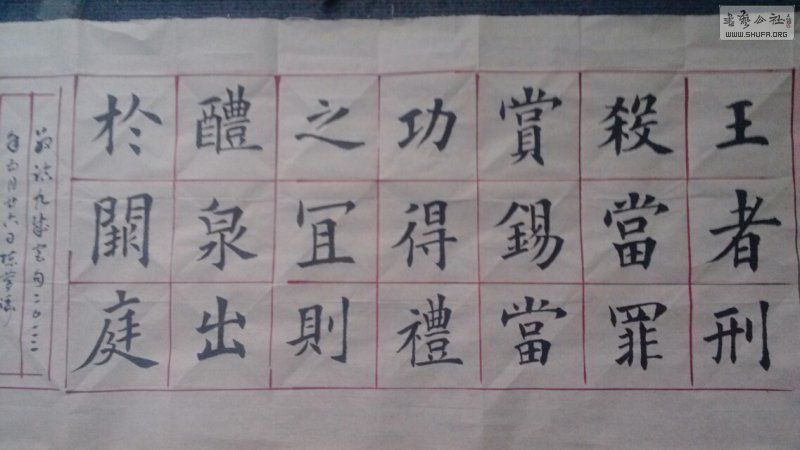 王者刑
殺當罪
賞錫當
功得禮
之宜則
醴泉出
於闕庭
临九成宫句二〇一
年月廿六日
书艺公社
WWW.SHUFA.ORG